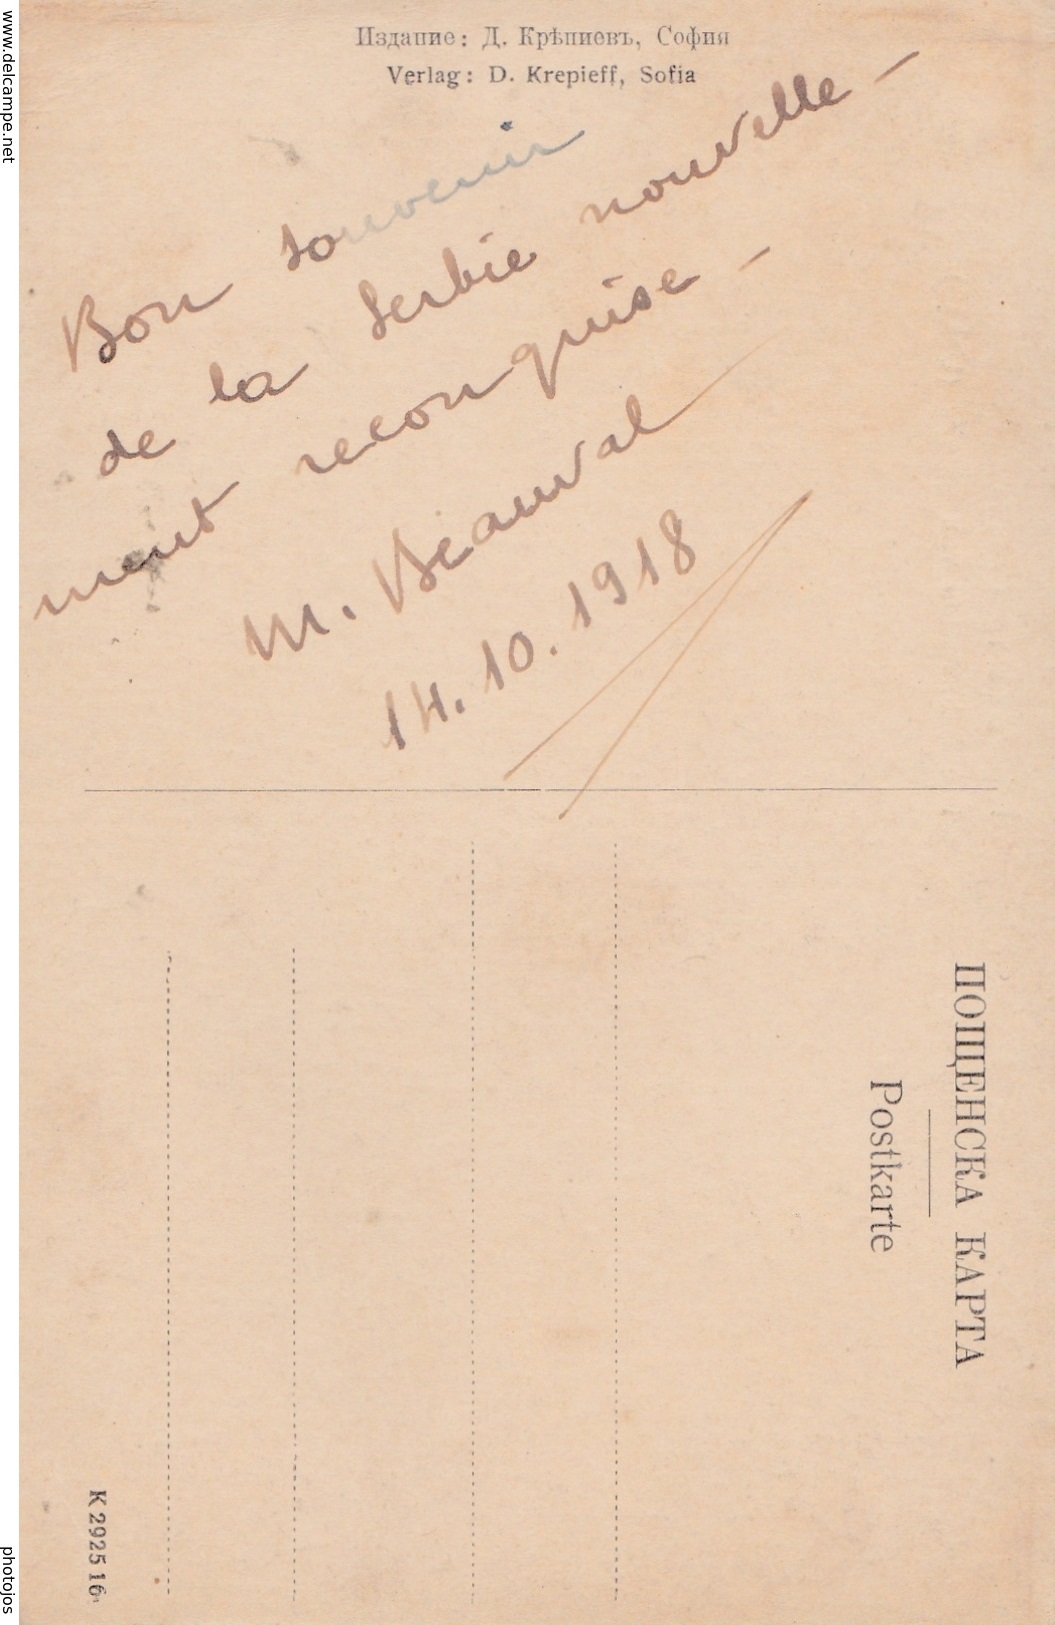 www.delcampe.net
Издание: Д. Крѣпиевъ, София
Verlag: D. Krepieff, Sofia
Bon souvenir
de la Serbie nouvelle-
ment reconquise -
M. Beauval
14.10.1918
ПОЩЕНСКА КАРТА
Postkarte
K 2925 16
photojos